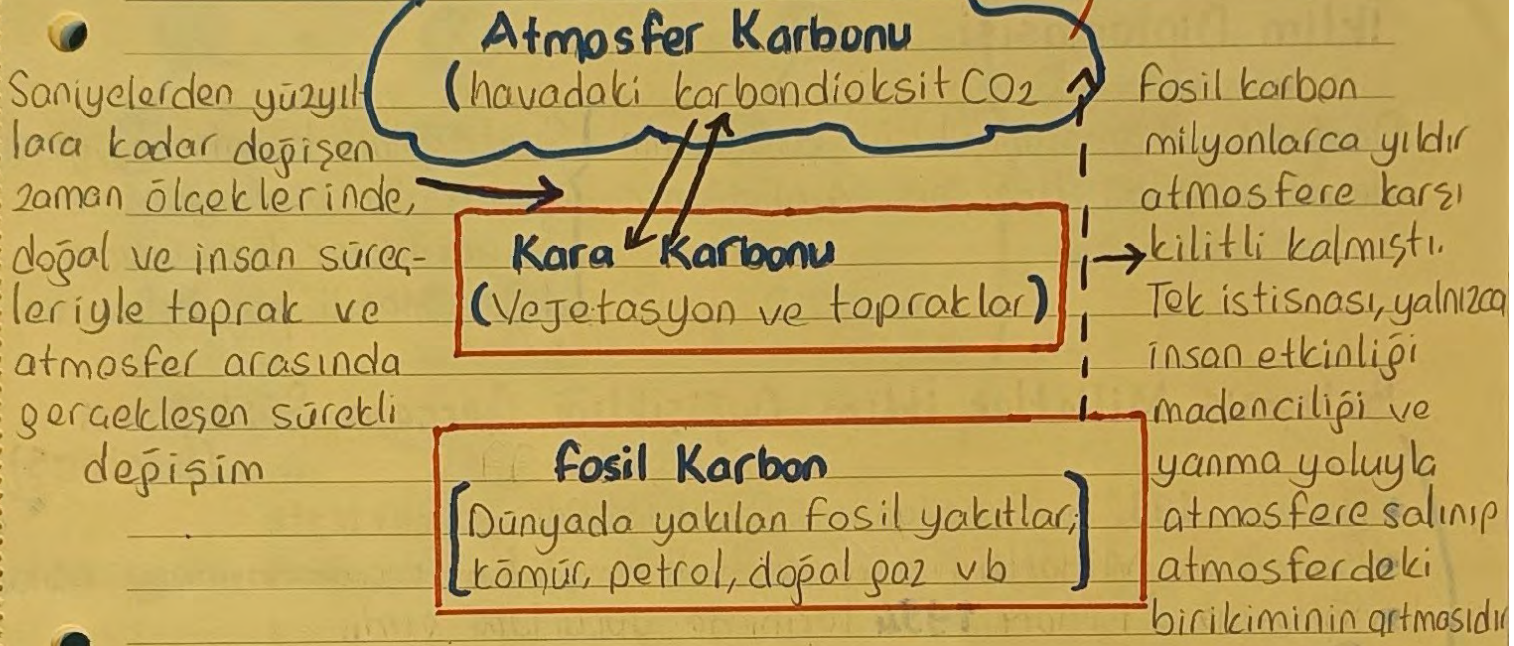 Atmosfer Karbonu
(havadaki karbondioksit CO2
Saniyelerden yüzyıl-
lara kadar değişen
zaman ölçeklerinde,
doğal ve insan süreç-
leriyle toprak ve
atmosfer arasında
gerçekleşen sürekli
değişim
Kara Karbonu
(Vejetasyon ve topraklar)
Fosil Karbon
[Dünyada yakılan fosil yakıtlar;
kömür, petrol, doğal gaz vb]
fosil karbon
milyonlarca yıldır
atmosfere karşı
kilitli kalmıştı.
Tek istisnası, yalnızca
insan etkinliği
madenciliği ve
yanma yoluyla
atmosfere salınıp
atmosferdeki
birikiminin artmasıdır